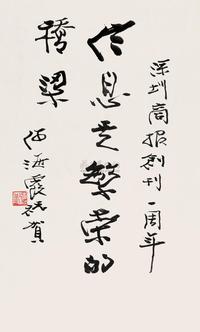 深圳商报创刊一周年
信息是繁荣的
桥梁
何海霞祝贺